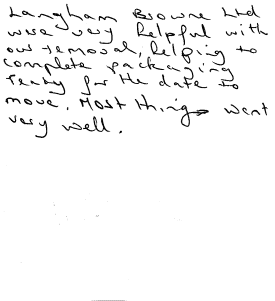 Langham Browne Ltd
were very helpful with
our removal, helping to
complete packaging
ready for the date to
move. Most things went
very well.